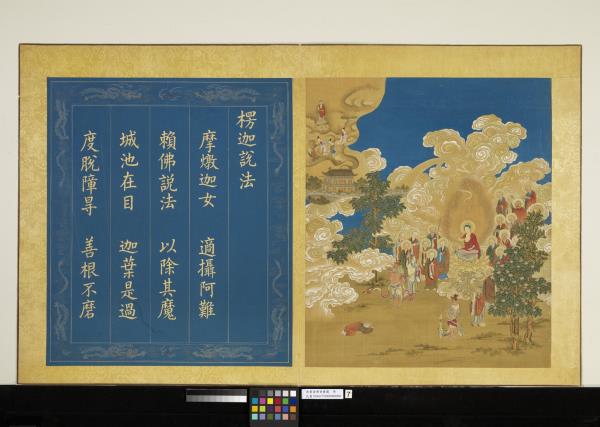 楞迦說法
摩燉迦女 適攝阿難
賴佛說法 以除其魔
城池在目 迦葉是過
度脫障㝵 善根不磨
7